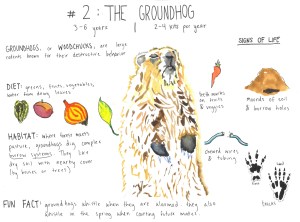 #2: THE GROUNDHOG
3-6 years | 2-4 kits per year
GROUNDHOGS, or WOODCHUCKS, are large
rodents known for their destructive behavior
DIET: greens, fruits, vegetables,
HABITAT: Where forest meets
pasture, groundhogs dig complex
burrow systems. They like
dry soil with nearby cover
FUN FACT: groundhogs whistle when they are alarmed they also
whistle in the spring when courting future mates.
SIGNS OF LIFE
teeth marks
on fruits
& veggies
Mounds of soil
& burrow holes
chewed wires
& tubing
tracks